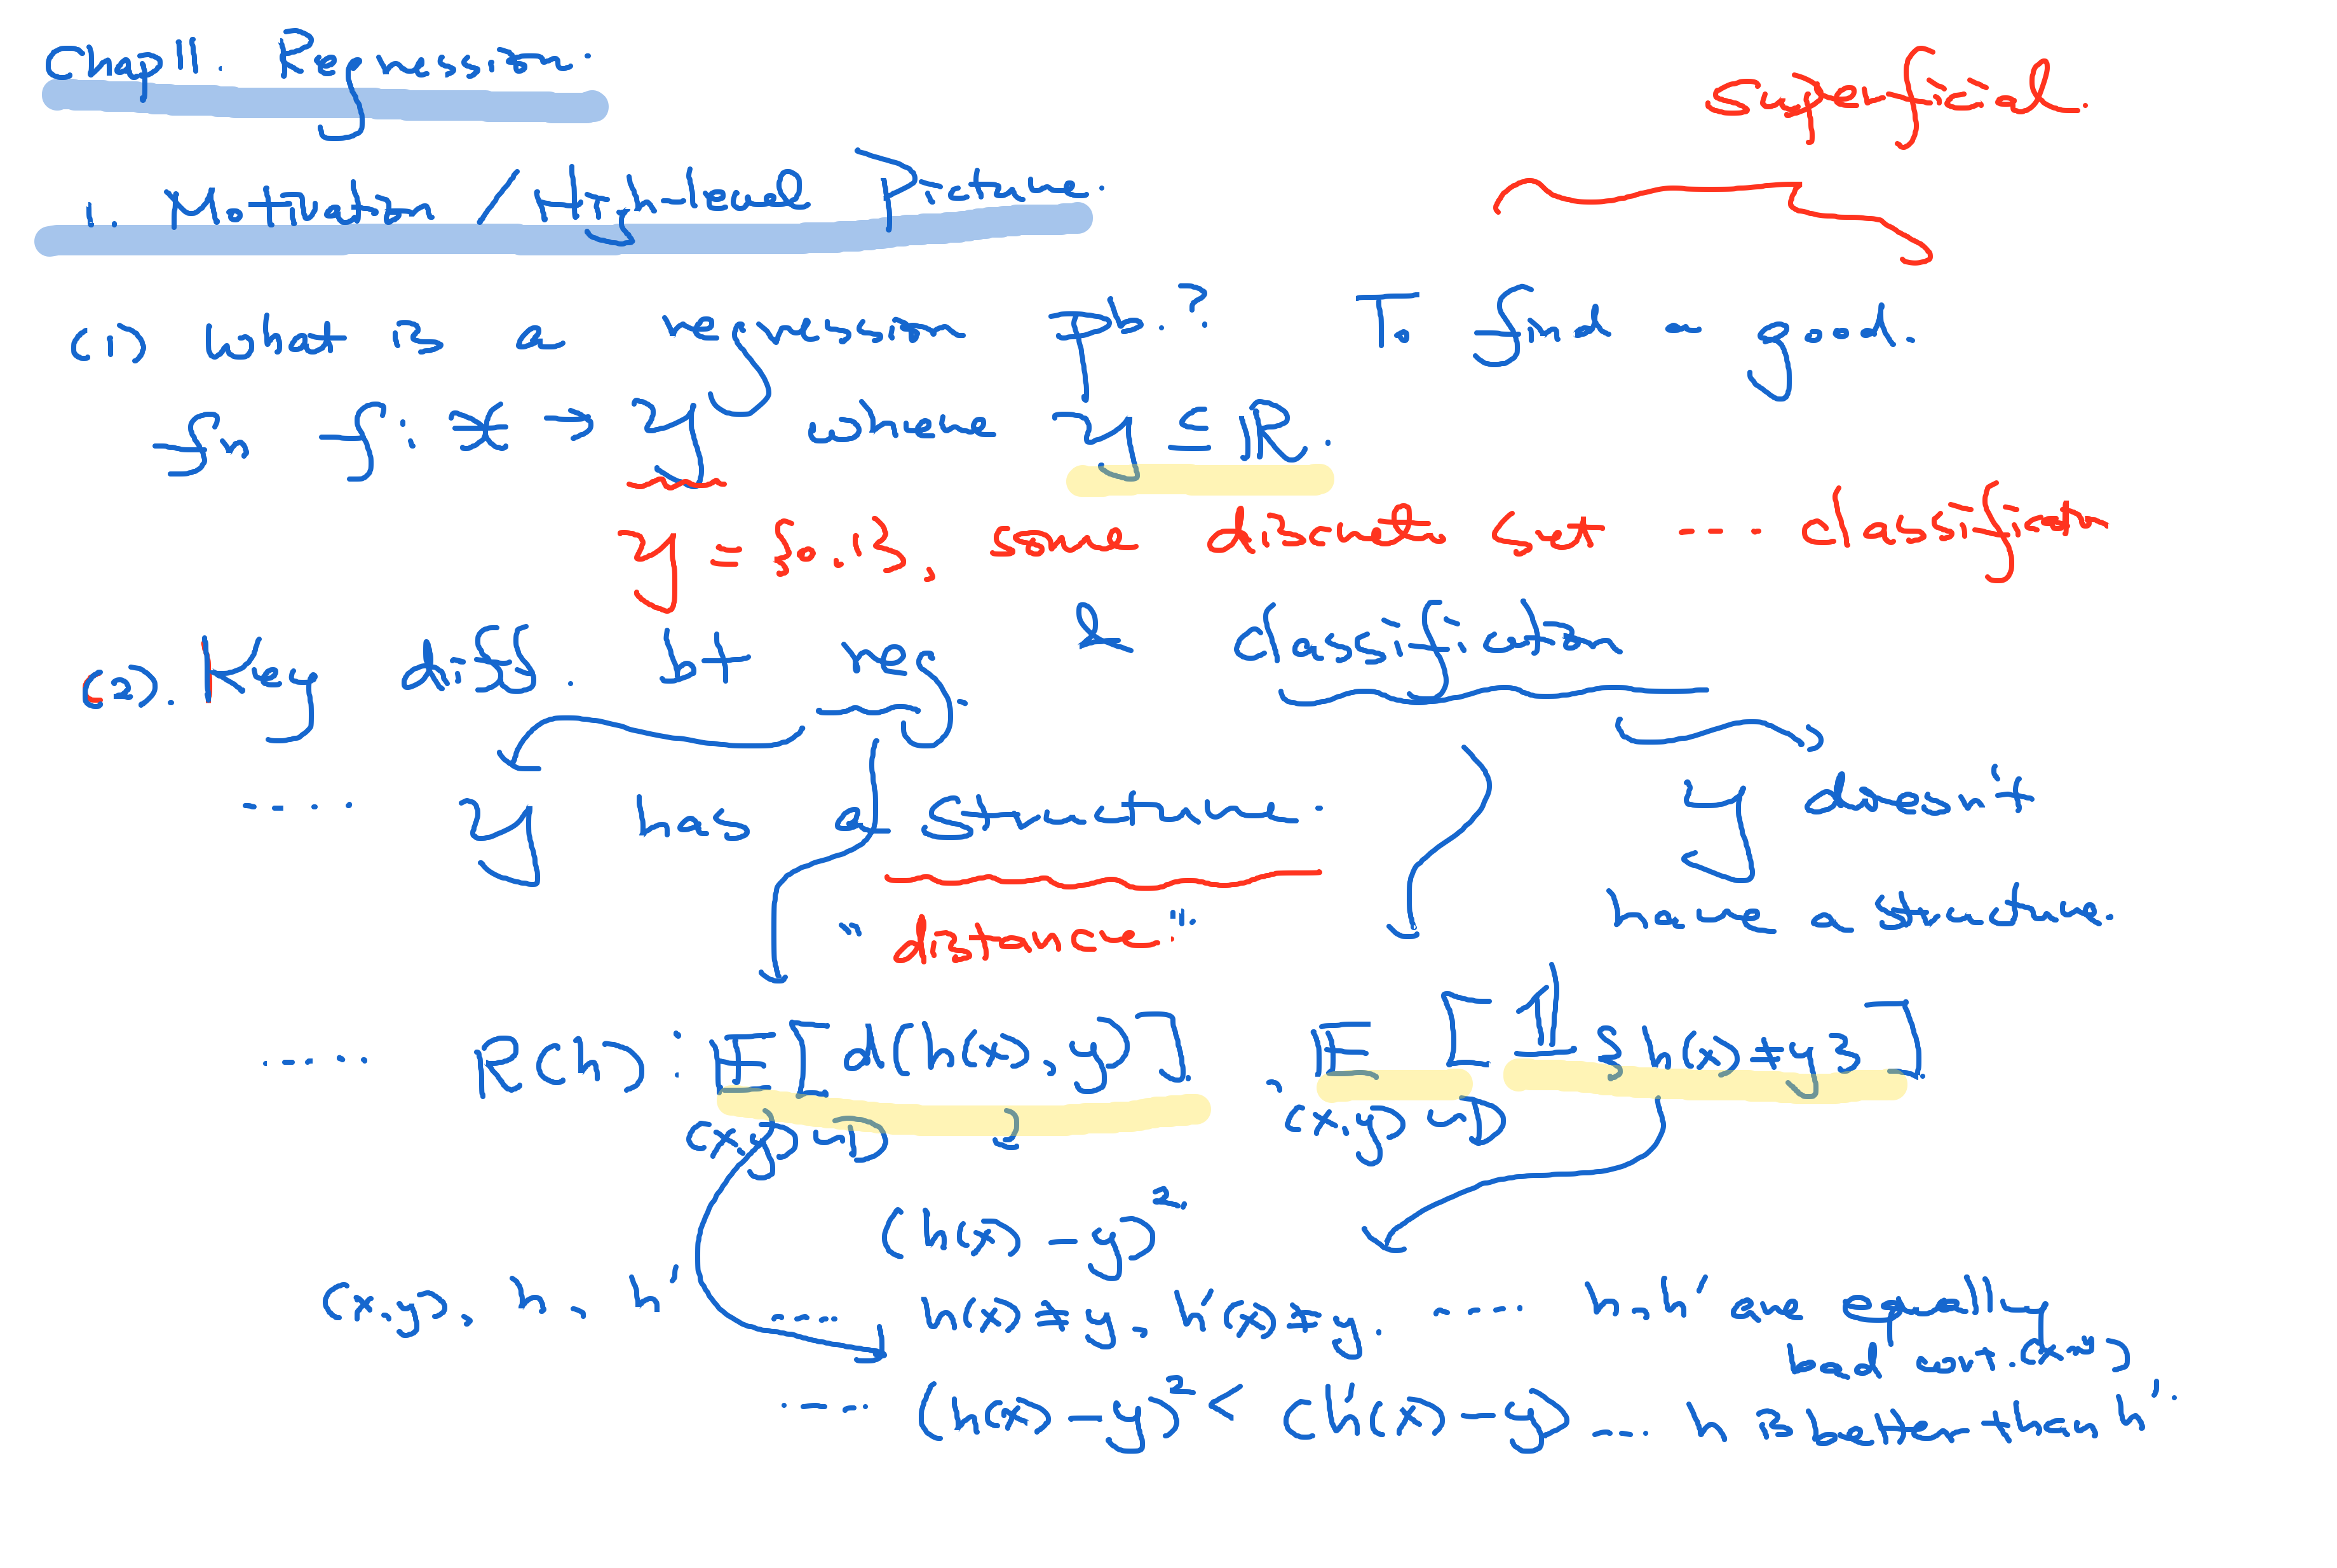 Chap11. Regression.
superficial.
1. Notation / High-level Picture.
(1) What is a regression pb.? To find a good.
fn f: X → Y where Y ⊆ ℝ.
Y = {0,1}, some discrete set ---- classification
(2). Key diff. bt reg. & classification
..... Y has a structure. Y doesn't
"distance". have a structure.
..... R(h) : 𝔼[d(h(x), y)]. , 𝔼[𝟙{h(x)≠y}].
(x,y)~D (x,y)~D
(h(x) - y)².
(x,y), h, h' .... h(x)≠y, h'(x)≠y. ---- h, h' are equally
bad wrt. (x,y)
.... (h(x) - y)² < (h'(x) - y) .... h is better than h'.